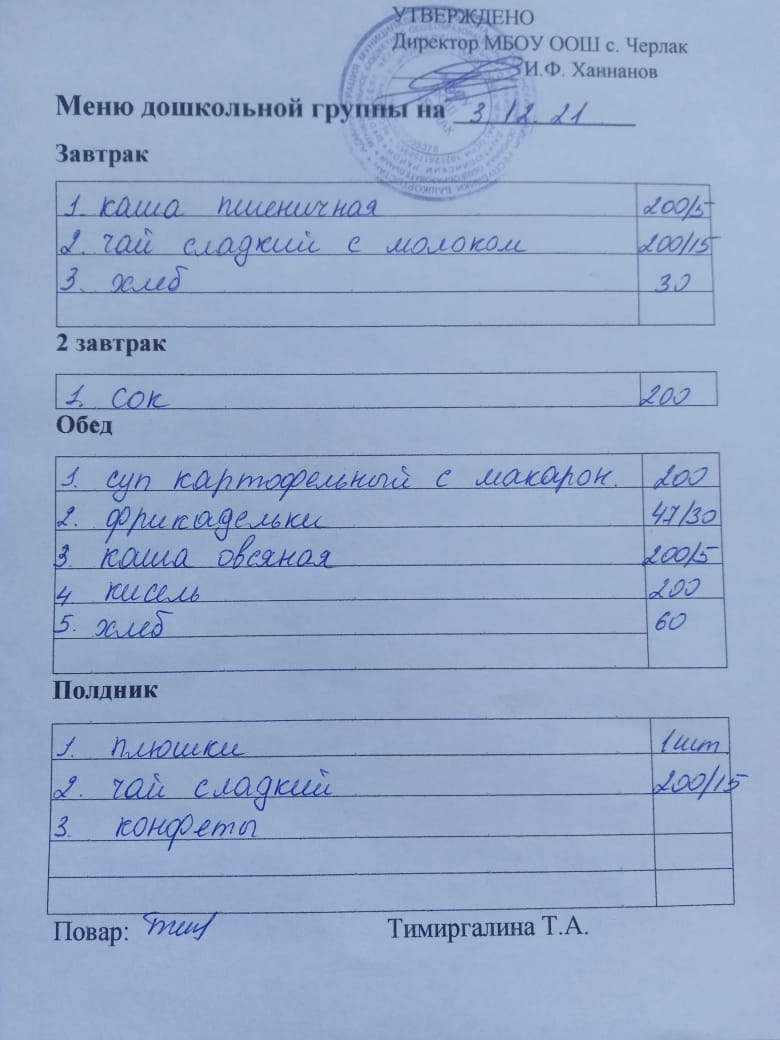 УТВЕРЖДЕНО
Директор МБОУ ООШ с. Черлак
И.Ф. Ханнанов
Меню дошкольной группы на 3. 12. 21
Завтрак
1. каша пшеничная 200/5
2. чай сладкий с молоком 200/15
3. хлеб 30
2 завтрак
1. сок 200
Обед
1. суп картофельный с макарон. 200
2. фрикадельки 47/30
3 каша овсяная 200/5
4 кисель 200
5. хлеб 60
Полдник
1. плюшки 1 шт
2. чай сладкий 200/15
3. конфеты
Повар: Тимиргалина Т.А.